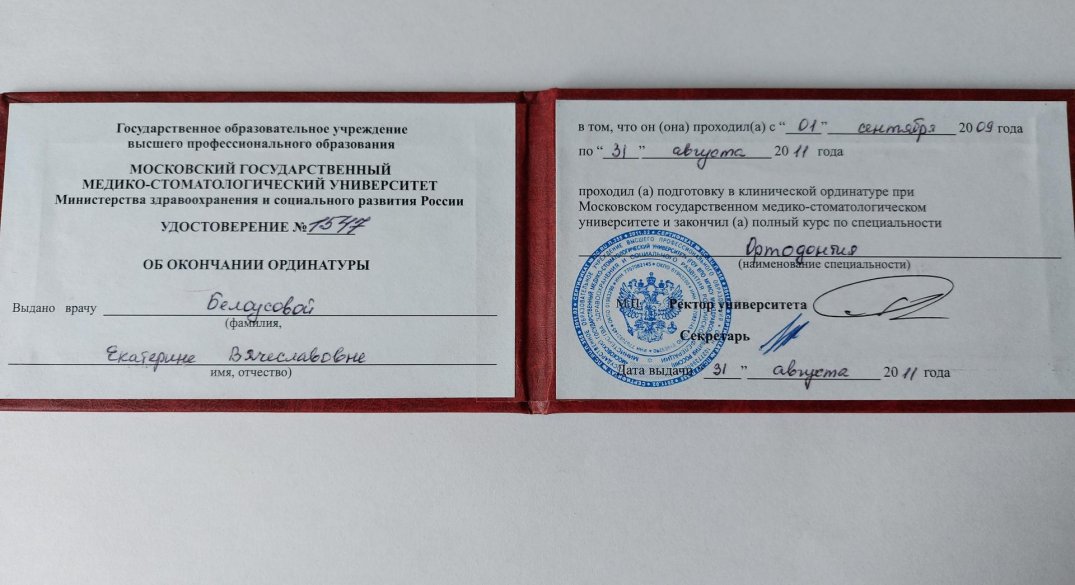 Государственное образовательное учреждение
высшего профессионального образования
МОСКОВСКИЙ ГОСУДАРСТВЕННЫЙ
МЕДИКО-СТОМАТОЛОГИЧЕСКИЙ УНИВЕРСИТЕТ
Министерства здравоохранения и социального развития России
УДОСТОВЕРЕНИЕ № 1547
ОБ ОКОНЧАНИИ ОРДИНАТУРЫ
Выдано врачу Белоусовой
(фамилия,
Екатерине Вячеславовне
имя, отчество)
в том, что он (она) проходил(а) с “ 01 ” сентября 2009 года
по “ 31 ” августа 2011 года
проходил (а) подготовку в клинической ординатуре при
Московском государственном медико-стоматологическом
университете и закончил (а) полный курс по специальности
Ортодонтия
(наименование специальности)
М.П. Ректор университета
Секретарь
Дата выдачи 31 ” августа 2011 года